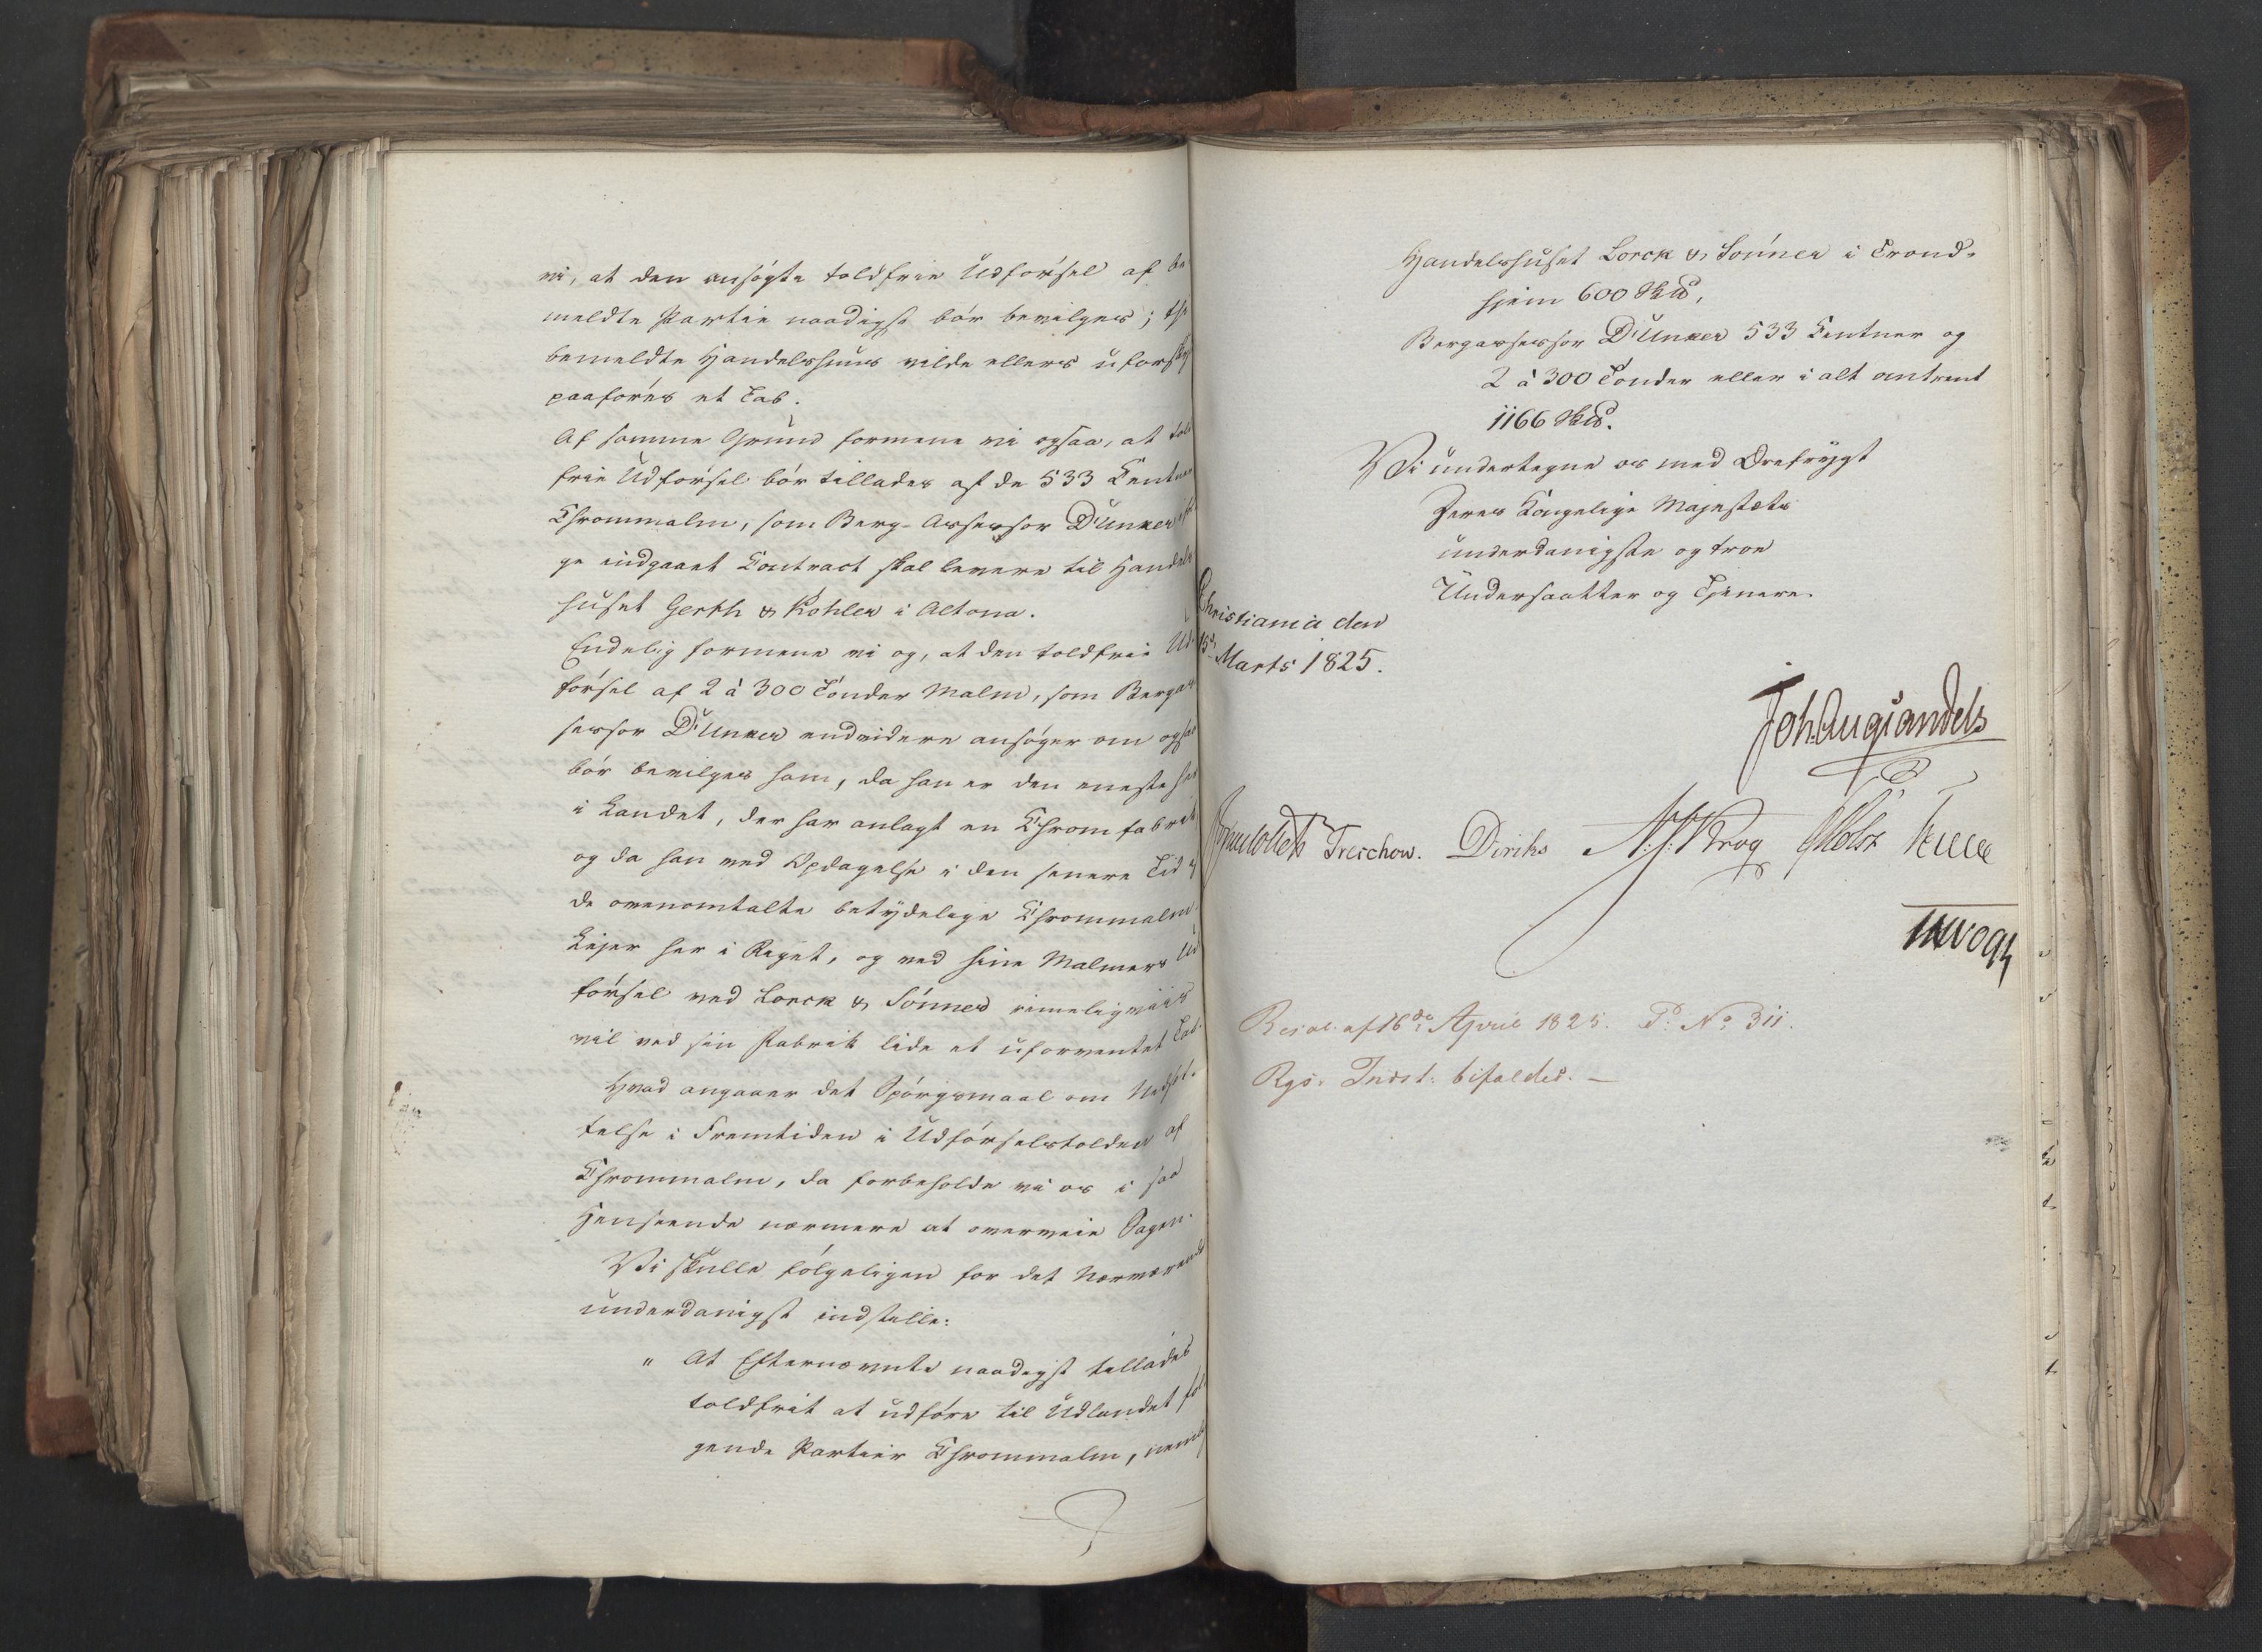 vi, at den ansøgte toldfrie Udførsel af be
meldte Partie naadigst bør bevilges; thi
bemeldte Handelshuus vilde ellers uforskyldt
paaføres et Tab.
Af samme Grund formene vi ogsaa, at told
frie Udførsel bør tillades af de 533 Centner
Chrommalm, som Berg-Assessor Dunker iføl
ge indgaaet Contract skal levere til Handels
huset Gerth & Kohler i Altona.
Endelig formene vi og, at den toldfrie Ud
førsel af 2 à 300 Tønder Malm, som Bergas
sessor Dunker endvidere ansøger om ogsaa
bør bevilges ham, da han er den eneste her
i Landet, der har anlagt en Chromfabrik
og da han ved Opdagelse i den senere Tid af
de ovenomtalte betydelige Chrommalm
Lejer her i Riget, og ved hine Malmers Ud
førsel ved Lorck & Sønner rimeligviis
vil ved sin Fabrik lide et uforventet Tab.
Hvad angaaer det Spørgsmaal om Nedsæt-
telse i Fremtiden i Udførselstolden af
Chrommalm, da forbeholde vi os i saa
Henseende nærmere at overveie Sagen.
Vi skulle følgeligen for det Nærværende
underdanigst indstille:
" At Efternævnte naadigst tillades
toldfrit at udføre til Udlandet føl
gende Partier Chrommalm, nemlig
Handelshuset Lorck & Sønner i Trond-
hjem 600 Sk℔,
Bergassessor Dunker 533 Centner og
2 à 300 Tønder eller i alt omtrent
1166 Sk℔.
Vi undertegne os med Ærefrygt
Deres Kongelige Majestæts
underdanigste og troe
Undersaatter og Tjenere.
Christiania den
15de Marts 1825.
Joh. Aug. Sandels
Treschow. Diriks Krog Holst
JHVogt
Resol. af 16de April 1825. Pd: No 311.
Rgs. Indst: bifaldes. —